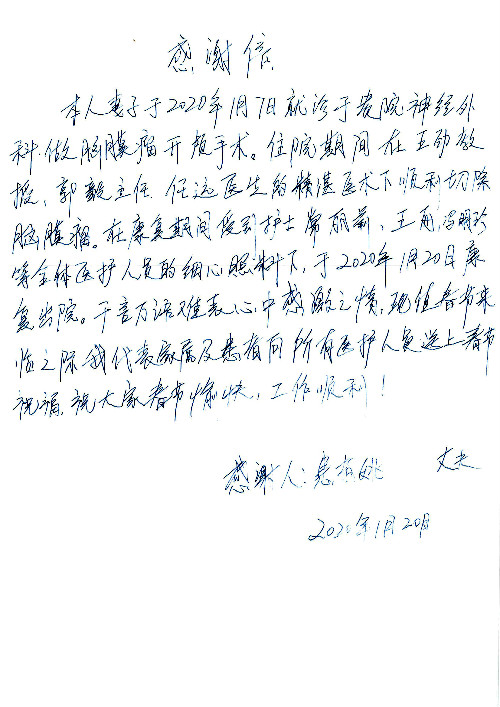 感谢信
本人妻子于2020年1月7日就诊于贵院神经外
科.做脑膜瘤开颅手术。住院期间在王劲教
授、郭毅主任、任远医生的精湛医术下顺利切除
脑膜瘤。在康复期间受到护士常丽莉、王勇、冯明
等全体医护人员的细心照料下,于2020年1月20日康
复出院。千言万语难表心中感激之情,现值春节来
临之际我代表家属及患者向所有医护人员送上春节
祝福,祝大家春节愉快、工作顺利!
感谢人:患者姚 丈夫
2020年1月20日